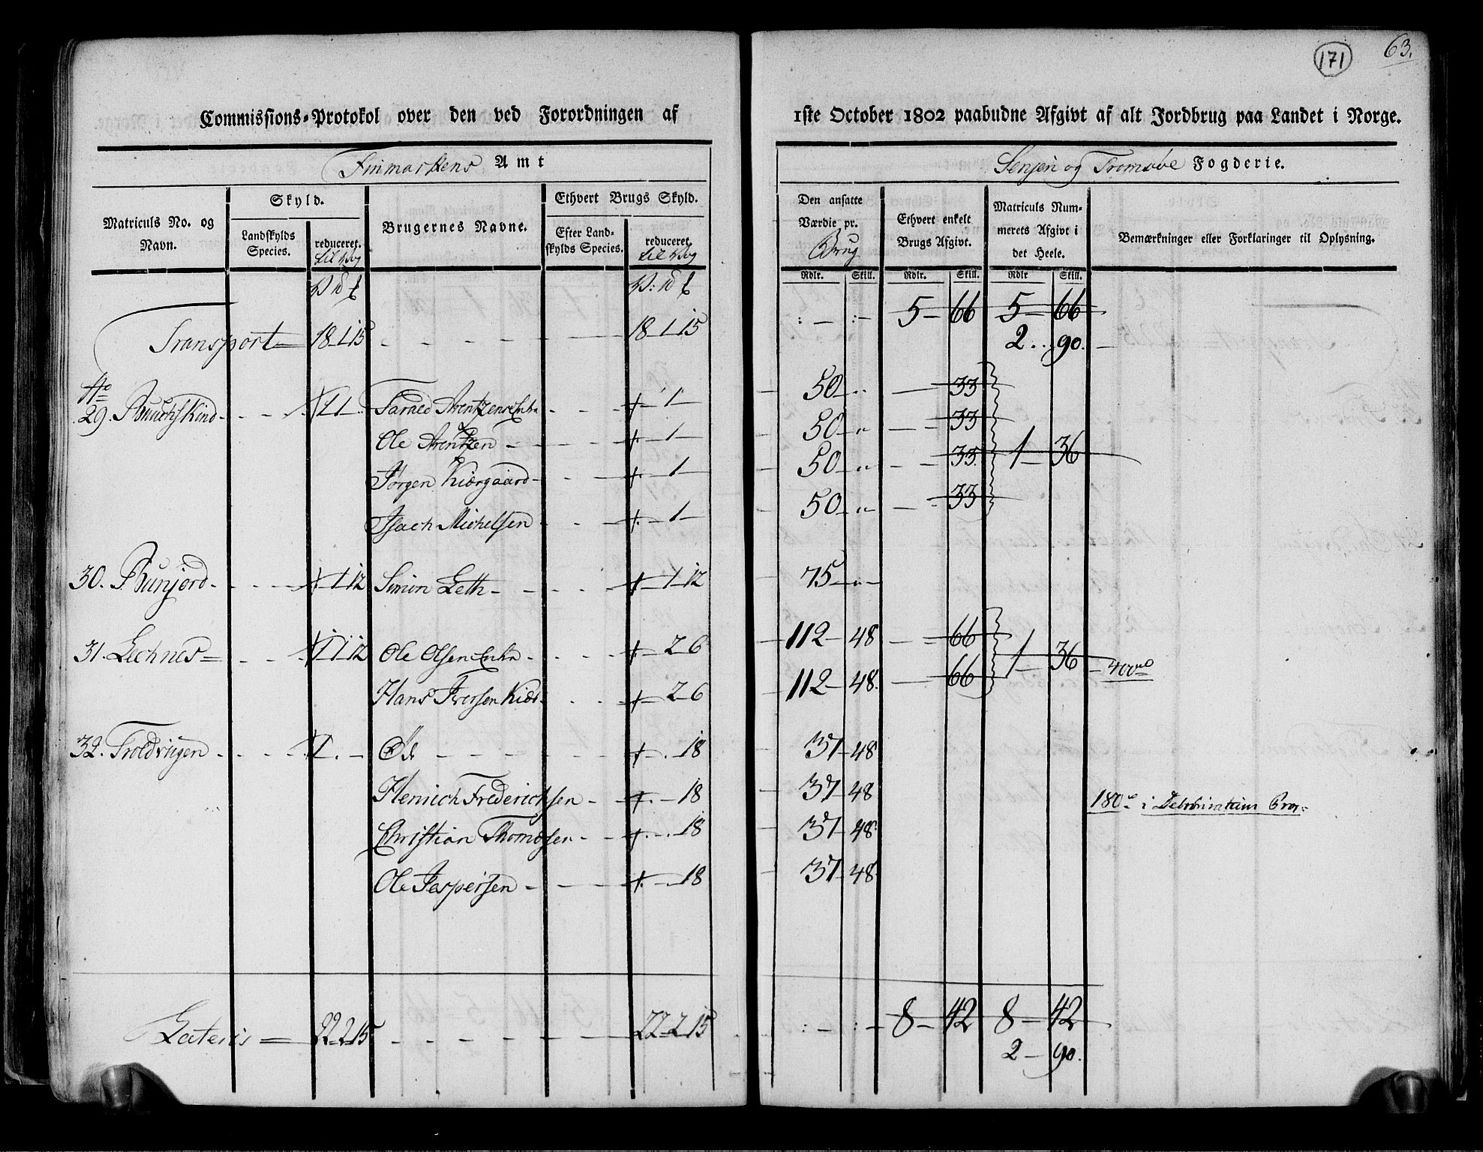 171
63.
Commissions-Protokol over den ved Forordningen af 1ste October 1802 paabudne Afgivt af alt Jordbrug paa Landet i Norge.
Finmarkens Amt
Senjen og Tromsøe Fogderie.
Matriculs No. og Navn.
Skyld.
Landskylds Species.
reduceret. til Vog
Brugernes Navne.
Ethvert Brugs Skyld.
Efter Landskylds Species.
reduceret. til Vog
Den ansatte Værdie pr. Brug
Rdlr. Skill.
Ethvert enkelt Brugs Afgivt.
Rdlr. Skill.
Matriculs Nummerets Afgivt i det Heele.
Rdlr. Skill.
Bemærkninger eller Forklaringer til Oplysning.
5 - 66 5 - 66
Transport 18 1 15 18 1 15 2 .. 90.
No
29. 1 1 Arentzen Enke 1 50 33
Ole Arentzen 1 50 33
1 - 36
Jørgen Kiergaard 1 50 33
Isach Michelsen 1 50 33
30. Bunjord 1 12 Simon Leth 1 12 75
31. Lechnes 1 1 12 Ole Olsen Enke 2 6 112 - 48 66
1 - 36
Hans Iversen Kiær 2 6 112 - 48 66
32. Troldvigen 1 - Øde 18 37 - 48
Henrich Frederichsen 18 37 - 48
180 i
Christian Thomesen 18 37 - 48
Ole Jespersen 18 37 - 48
Lateris 22 2 15 22 2 15 8 - 42 8 - 42
2 - 90.